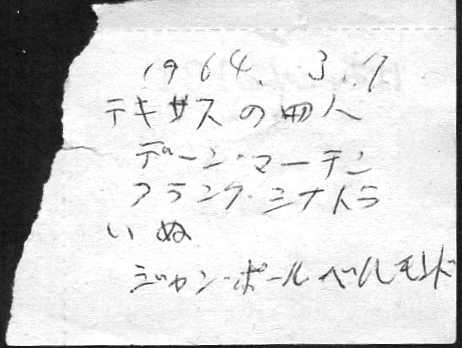 1964.3.7
テキサスの四人
デーン・マーチン
フランク・シナトラ
いぬ
ジャン・ポールベルモンド